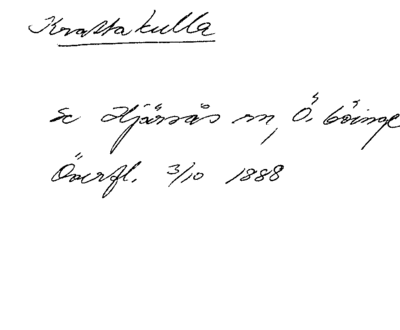 Krastakulla
Se Hjärsås sn, Ö. Göinge
Överfl. 3/10 1888